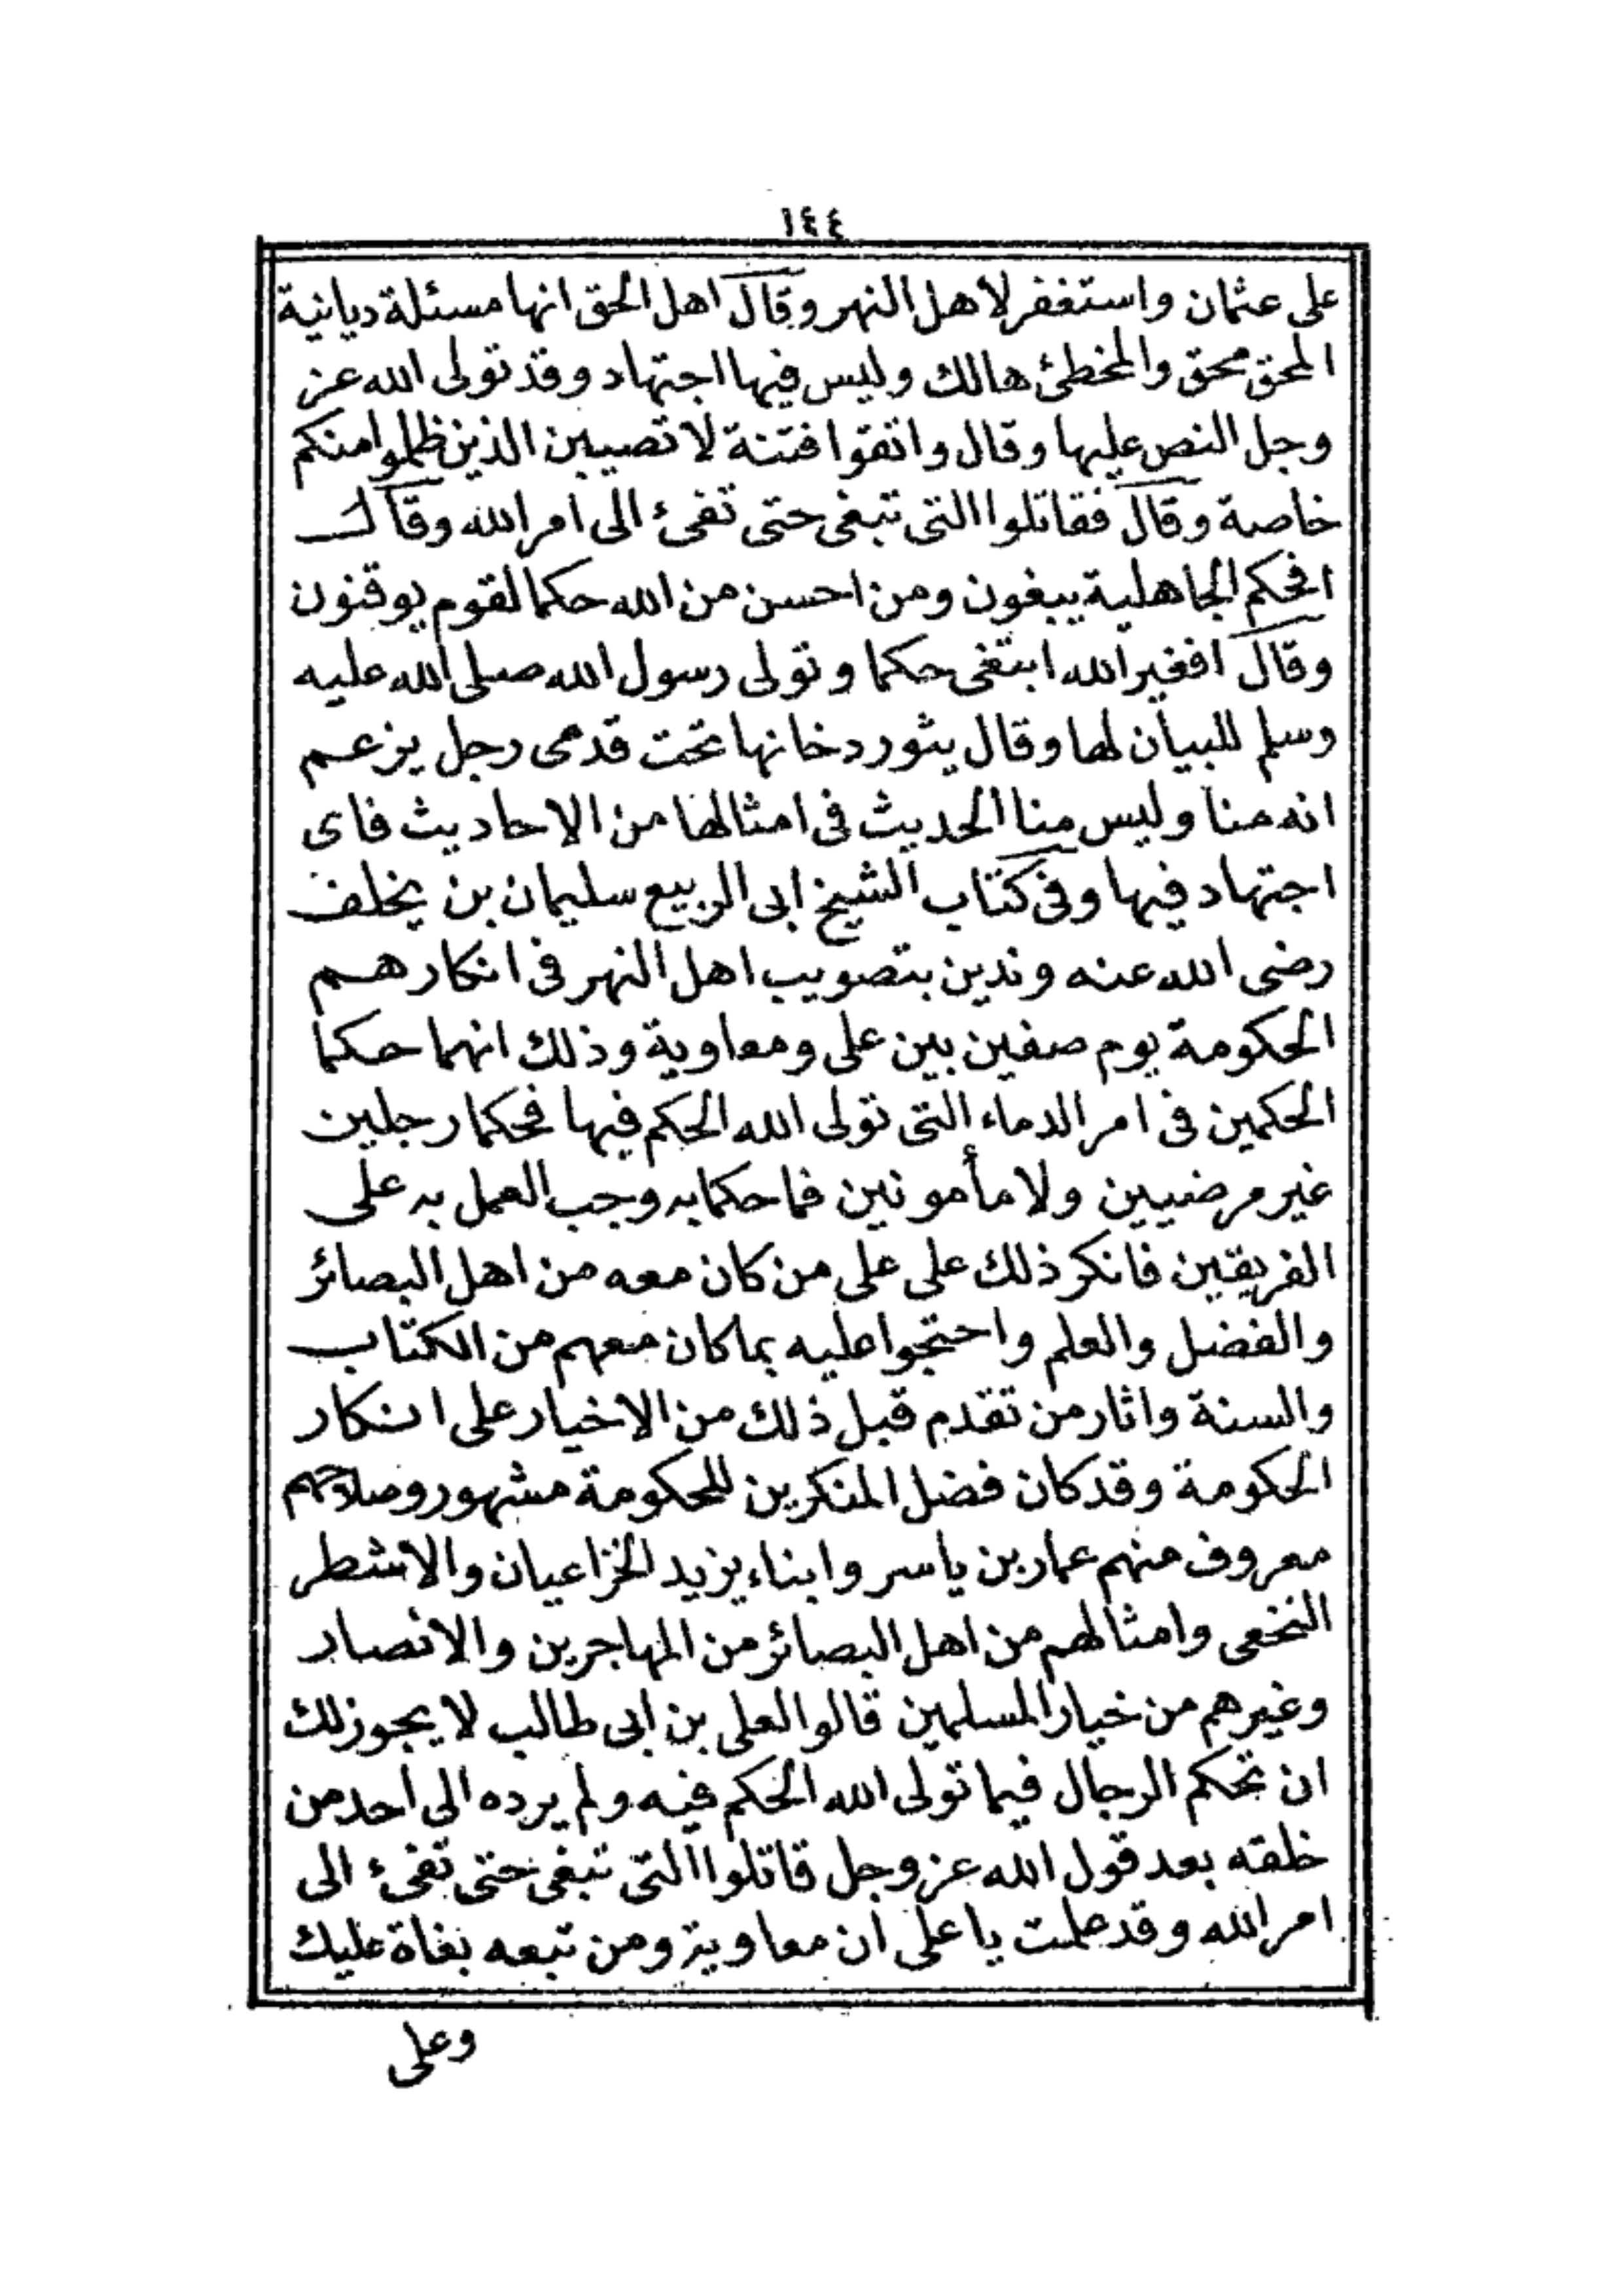 ١٤٤
على عثمان واستغفر لاهل النهر وقال اهل الحق انها مسئلة ديانية
المحق محق والمخطئ هالك وليس فيها اجتهاد وقد تولى الله عز
وجل النص عليها وقال واتقوا فتنة لا تصيبن الذين ظلموا منكم
خاصة وقال فقاتلوا التى تبغى حتى تفىء الى امر الله وقال
افحكم الجاهلية يبغون ومن احسن من الله حكما لقوم يوقنون
وقال افغير الله ابتغى حكما وتولى رسول الله صلى الله عليه
وسلم للبيان لها وقال يثور دخانها تحت قدمى رجل يزعم
انه منا وليس منا الحديث فى امثالها من الاحاديث فاى
اجتهاد فيها وفى كتاب الشيخ ابى الربيع سليمان بن يخلف
رضى الله عنه وندين بتصويب اهل النهر فى انكارهم
الحكومة يوم صفين بين على ومعاوية وذلك انهما حكما
الحكمين فى امر الدماء التى تولى الله الحكم فيها فحكما رجلين
غير مرضيين ولا مأمونين فما حكما به وجب العمل به على
الفريقين فانكر ذلك على على من كان معه من اهل البصائر
والفضل والعلم واحتجوا عليه بما كان معهم من الكتاب
والسنة واثار من تقدم قبل ذلك من الاخيار على انكار
الحكومة وقد كان فضل المنكرين للحكومة مشهور وصلاحهم
معروف منهم عمار بن ياسر وابناء يزيد الخزاعيان والاشطر
النخعى وامثالهم من اهل البصائر من المهاجرين والانصار
وغيرهم من خيار المسلمين قالوا لعلى بن ابى طالب لا يجوز لك
ان تحكم الرجال فيما تولى الله الحكم فيه ولم يرده الى أحد من
خلقه بعد قول الله عز وجل قاتلوا التى تبغى حتى تفىء الى
امر الله وقد علمت يا على ان معاوية ومن تبعه بغاة عليك
وعلى